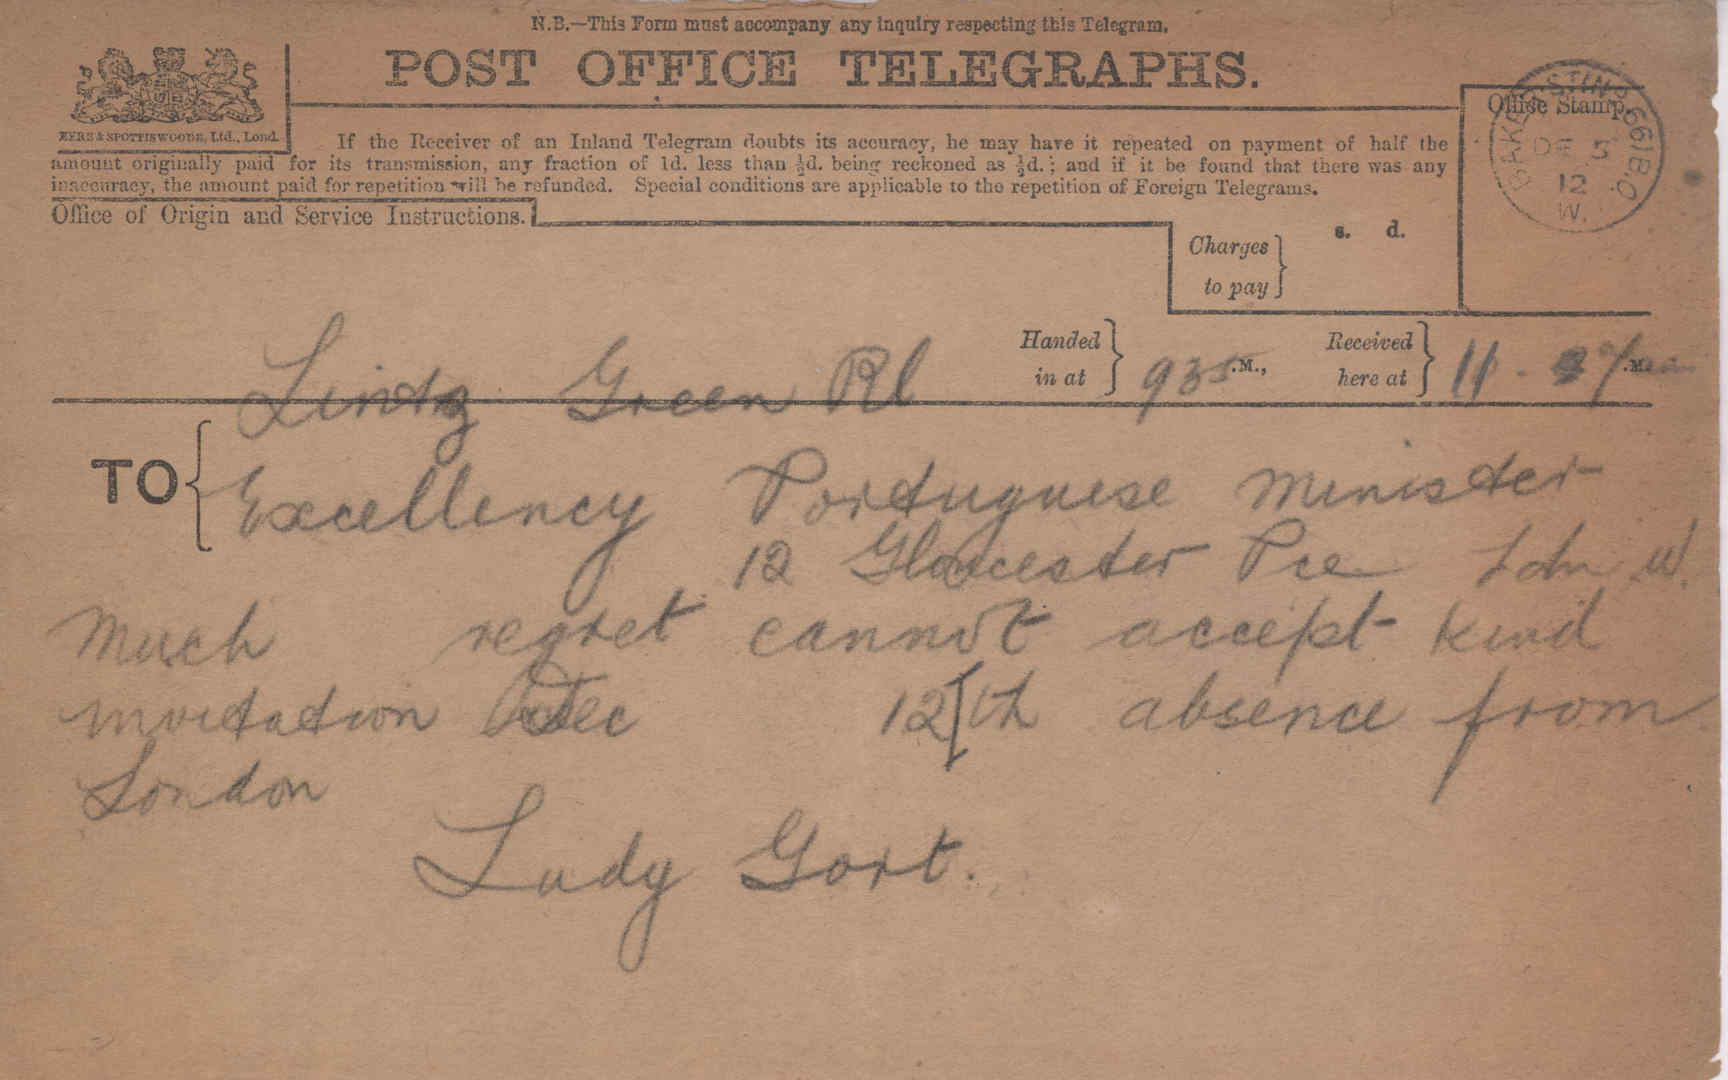 N.B.—This Form must accompany any inquiry respecting this Telegram.
POST OFFICE TELEGRAPHS.
EYRE & SPOTTISWOODE, Ltd., Lond.
If the Receiver of an Inland Telegram doubts its accuracy, he may have it repeated on payment of half the
amount originally paid for its transmission, any fraction of 1d. less than ½d. being reckoned as ½d.; and if it be found that there was any
inaccuracy, the amount paid for repetition will be refunded. Special conditions are applicable to the repetition of Foreign Telegrams.
Office of Origin and Service Instructions.
Office Stamp.
DE 5
12
W.
Charges to pay } s. d.
Lintz Green Rl
Handed in at } 935 .M.,
Received here at } 11 .M.
TO { Excellency Portuguese Minister
12 Gloucester Pce Ldn W.
Much regret cannot accept kind
invitation Dec 12/th absence from
London
Lady Gort.